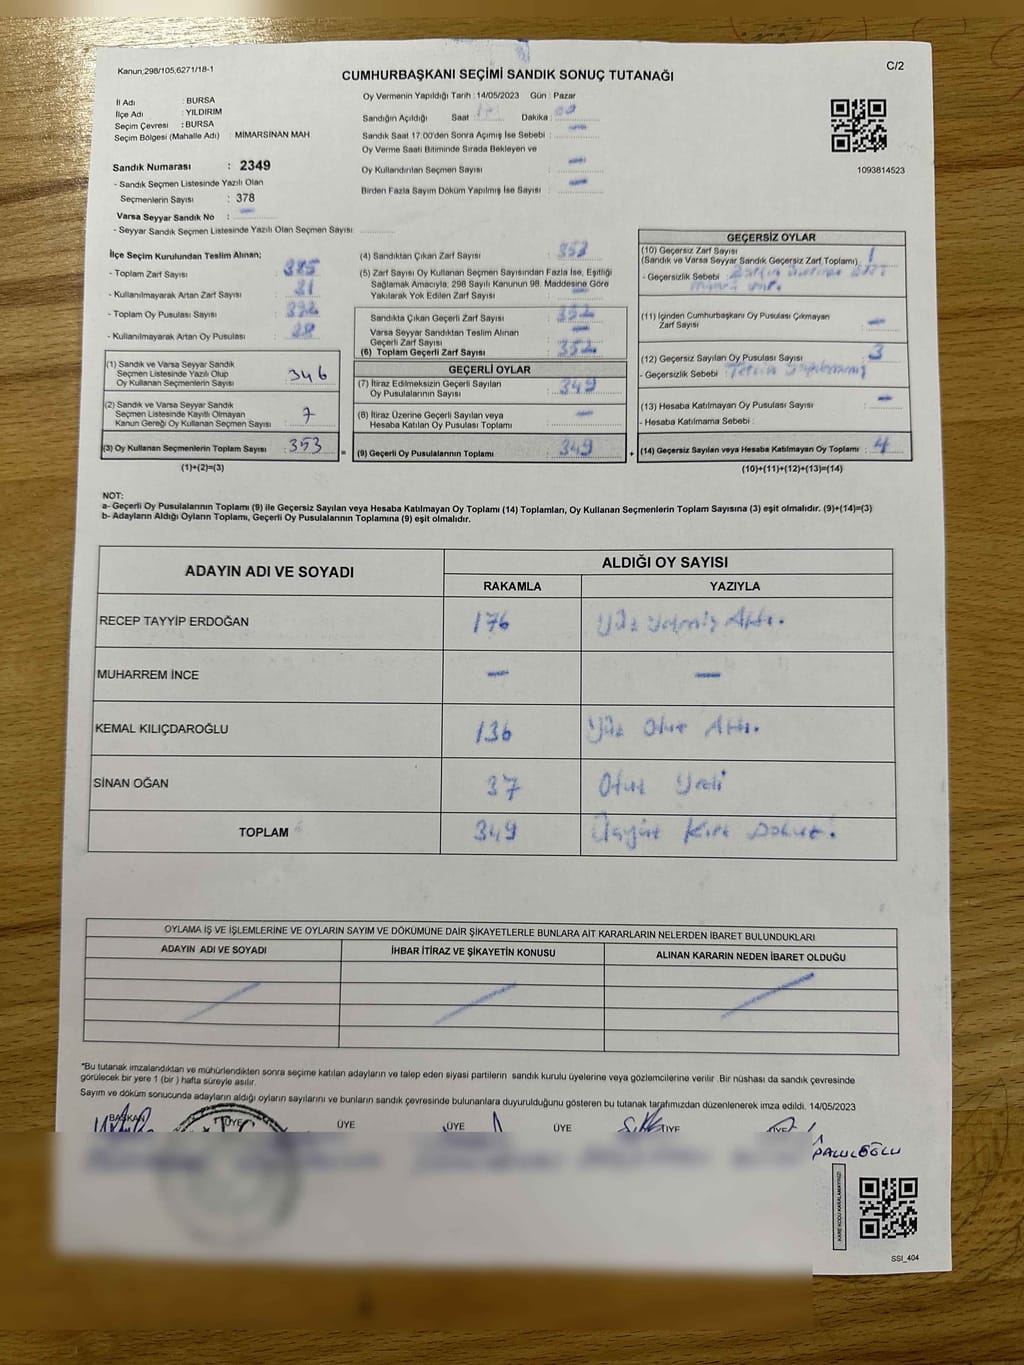 Kanun;298/105,6271/18-1
C/2
CUMHURBAŞKANI SEÇİMİ SANDIK SONUÇ TUTANAĞI
İl Adı : BURSA
İlçe Adı : YILDIRIM
Seçim Çevresi : BURSA
Seçim Bölgesi (Mahalle Adı) : MİMARSİNAN MAH
Sandık Numarası : 2349
- Sandık Seçmen Listesinde Yazılı Olan
Seçmenlerin Sayısı : 378
Varsa Seyyar Sandık No : —
- Seyyar Sandık Seçmen Listesinde Yazılı Olan Seçmen Sayısı
Oy Vermenin Yapıldığı Tarih : 14/05/2023 Gün : Pazar
Sandığın Açıldığı Saat Dakika : 00
Sandık Saat 17:00'den Sonra Açımış İse Sebebi : —
Oy Verme Saati Bitiminde Sırada Bekleyen ve
Oy Kullandırılan Seçmen Sayısı : —
Birden Fazla Sayım Döküm Yapılmış İse Sayısı : —
1093814523
İlçe Seçim Kurulundan Teslim Alınan;
- Toplam Zarf Sayısı : 385
- Kullanılmayarak Artan Zarf Sayısı : 31
- Toplam Oy Pusulası Sayısı : 392
- Kullanılmayarak Artan Oy Pusulası :
(1) Sandık ve Varsa Seyyar Sandık
Seçmen Listesinde Yazılı Olup
Oy Kullanan Seçmenlerin Sayısı : 346
(2) Sandık ve Varsa Seyyar Sandık
Seçmen Listesinde Kayıtlı Olmayan
Kanun Gereği Oy Kullanan Seçmen Sayısı : 7
(3) Oy Kullanan Seçmenlerin Toplam Sayısı : 353
(1)+(2)=(3)
(4) Sandıktan Çıkan Zarf Sayısı : 353
(5) Zarf Sayısı Oy Kullanan Seçmen Sayısından Fazla İse, Eşitliği
Sağlamak Amacıyla, 298 Sayılı Kanunun 98. Maddesine Göre
Yakılarak Yok Edilen Zarf Sayısı : —
Sandıkta Çıkan Geçerli Zarf Sayısı : 352
Varsa Seyyar Sandıktan Teslim Alınan
Geçerli Zarf Sayısı : —
(6) Toplam Geçerli Zarf Sayısı : 352
GEÇERLİ OYLAR
(7) İtiraz Edilmeksizin Geçerli Sayılan
Oy Pusulalarının Sayısı : 349
(8) İtiraz Üzerine Geçerli Sayılan veya
Hesaba Katılan Oy Pusulası Toplamı : —
= (9) Geçerli Oy Pusulalarının Toplamı : 349
GEÇERSİZ OYLAR
(10) Geçersiz Zarf Sayısı
(Sandık ve Varsa Seyyar Sandık Geçersiz Zarf Toplamı) : 1
- Geçersizlik Sebebi :
(11) İçinden Cumhurbaşkanı Oy Pusulası Çıkmayan
Zarf Sayısı : —
(12) Geçersiz Sayılan Oy Pusulası Sayısı : 3
- Geçersizlik Sebebi : Tercih
(13) Hesaba Katılmayan Oy Pusulası Sayısı : —
- Hesaba Katılmama Sebebi :
+ (14) Geçersiz Sayılan veya Hesaba Katılmayan Oy Toplamı : 4
(10)+(11)+(12)+(13)=(14)
NOT:
a- Geçerli Oy Pusulalarının Toplamı (9) ile Geçersiz Sayılan veya Hesaba Katılmayan Oy Toplamı (14) Toplamları, Oy Kullanan Seçmenlerin Toplam Sayısına (3) eşit olmalıdır. (9)+(14)=(3)
b- Adayların Aldığı Oyların Toplamı, Geçerli Oy Pusulalarının Toplamına (9) eşit olmalıdır.
ADAYIN ADI VE SOYADI ALDIĞI OY SAYISI
RAKAMLA YAZIYLA
RECEP TAYYİP ERDOĞAN 176 Yüz Yetmiş Altı.
MUHARREM İNCE — —
KEMAL KILIÇDAROĞLU 136 Yüz Otuz Altı.
SİNAN OĞAN 37 Otuz Yedi
TOPLAM 349 Üçyüz Kırk Dokuz.
OYLAMA İŞ VE İŞLEMLERİNE VE OYLARIN SAYIM VE DÖKÜMÜNE DAİR ŞİKAYETLERLE BUNLARA AİT KARARLARIN NELERDEN İBARET BULUNDUKLARI
ADAYIN ADI VE SOYADI İHBAR İTİRAZ VE ŞİKAYETİN KONUSU ALINAN KARARIN NEDEN İBARET OLDUĞU
*Bu tutanak imzalandıktan ve mühürlendikten sonra seçime katılan adayların ve talep eden siyasi partilerin sandık kurulu üyelerine veya gözlemcilerine verilir .Bir nüshası da sandık çevresinde
görülecek bir yere 1 (bir ) hafta süreyle asılır.
Sayım ve döküm sonucunda adayların aldığı oyların sayılarını ve bunların sandık çevresinde bulunanlara duyurulduğunu gösteren bu tutanak tarafımızdan düzenlenerek imza edildi. 14/05/2023
BAŞKAN ÜYE ÜYE ÜYE ÜYE ÜYE ÜYE
PALULOĞLU
KARE KODU KARALAMAYINIZ!
SSI_404